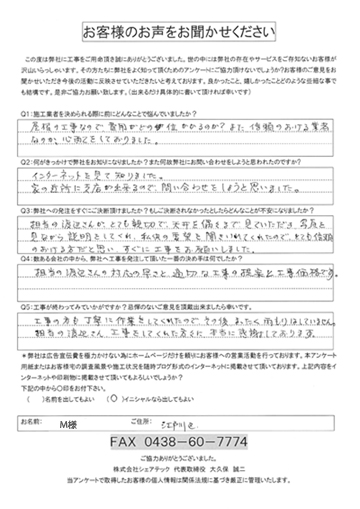 お客様のお声をお聞かせください
この度は弊社に工事をご用命頂き誠にありがとうございました。世の中には弊社の存在やサービスをご存知ないお客様が
沢山いらっしゃいます。その方たちに弊社をよく知って頂くためのアンケートにご協力頂けないでしょうか？お客様のご意見をお
聞かせいただき今後の活動に反映させていただきたいと考えております。良かったこと、嬉しかったことどのような些細な事で
も結構です。是非ご協力お願い致します。（出来るだけ具体的に書いて頂ければ幸いです）
Q1:施工業者を決められる際に前にどんなことで悩んでいましたか？
屋根の工事なので、費用がどの位かかるのか？また、信頼のおける業者
なのか、心配をしておりました。
Q2:何がきっかけで弊社をお知りになりましたか？また何故弊社にお問い合わせをしようと思われたのですか？
インターネットを見て知りました。
家の近所に支店が出来るので、問い合わせをしようと思いました。
Q3:弊社への発注をすぐにご決断頂けましたか？もしご決断されなかったとしたらどんなことが不安になりましたか？
担当の渡辺さんが、とても親切で、天井を備えまで見ていただき、写真を
見ながら説明をしてくれ、私共の要望も聞き入れてくれたので、とても信頼
のおける方だと思い、すぐに工事をお願いしました。
Q4:数ある会社の中から、弊社へ工事を発注して頂いた一番の決め手は何でしたか？
担当の渡辺さんの対応の早さと、適切な工事の提案と工事価格です。
Q5:工事が終わってみていかがですか？忌憚のないご意見を頂戴出来ましたら幸いです。
工事の方も丁寧に作業をしてくれたので、その後まったく雨もりはしていません。
担当の渡辺さん、工事をしてくれた方々に、本当に感謝しております。
＊弊社は広告宣伝費を極力かけない為にホームページだけを頼りにお客様への営業活動を行っております。本アンケート
用紙またはお客様宅の調査風景や施工状況を随時ブログ形式のインターネットに掲載させて頂いております。上記内容をイ
ンターネットや印刷物に掲載させて頂いてもよろしいでしょうか？
下記の中から○印をお付け下さい。
（　）名前を出してもよい　（○）イニシャルなら出してもよい
お名前: M様 ご住所: 江戸川区
FAX 0438-60-7774
ご協力ありがとうございました。
株式会社シェアテック 代表取締役 大久保 誠二
当アンケートで取得したお客様の個人情報は関係法規に基づき厳正に管理いたします。